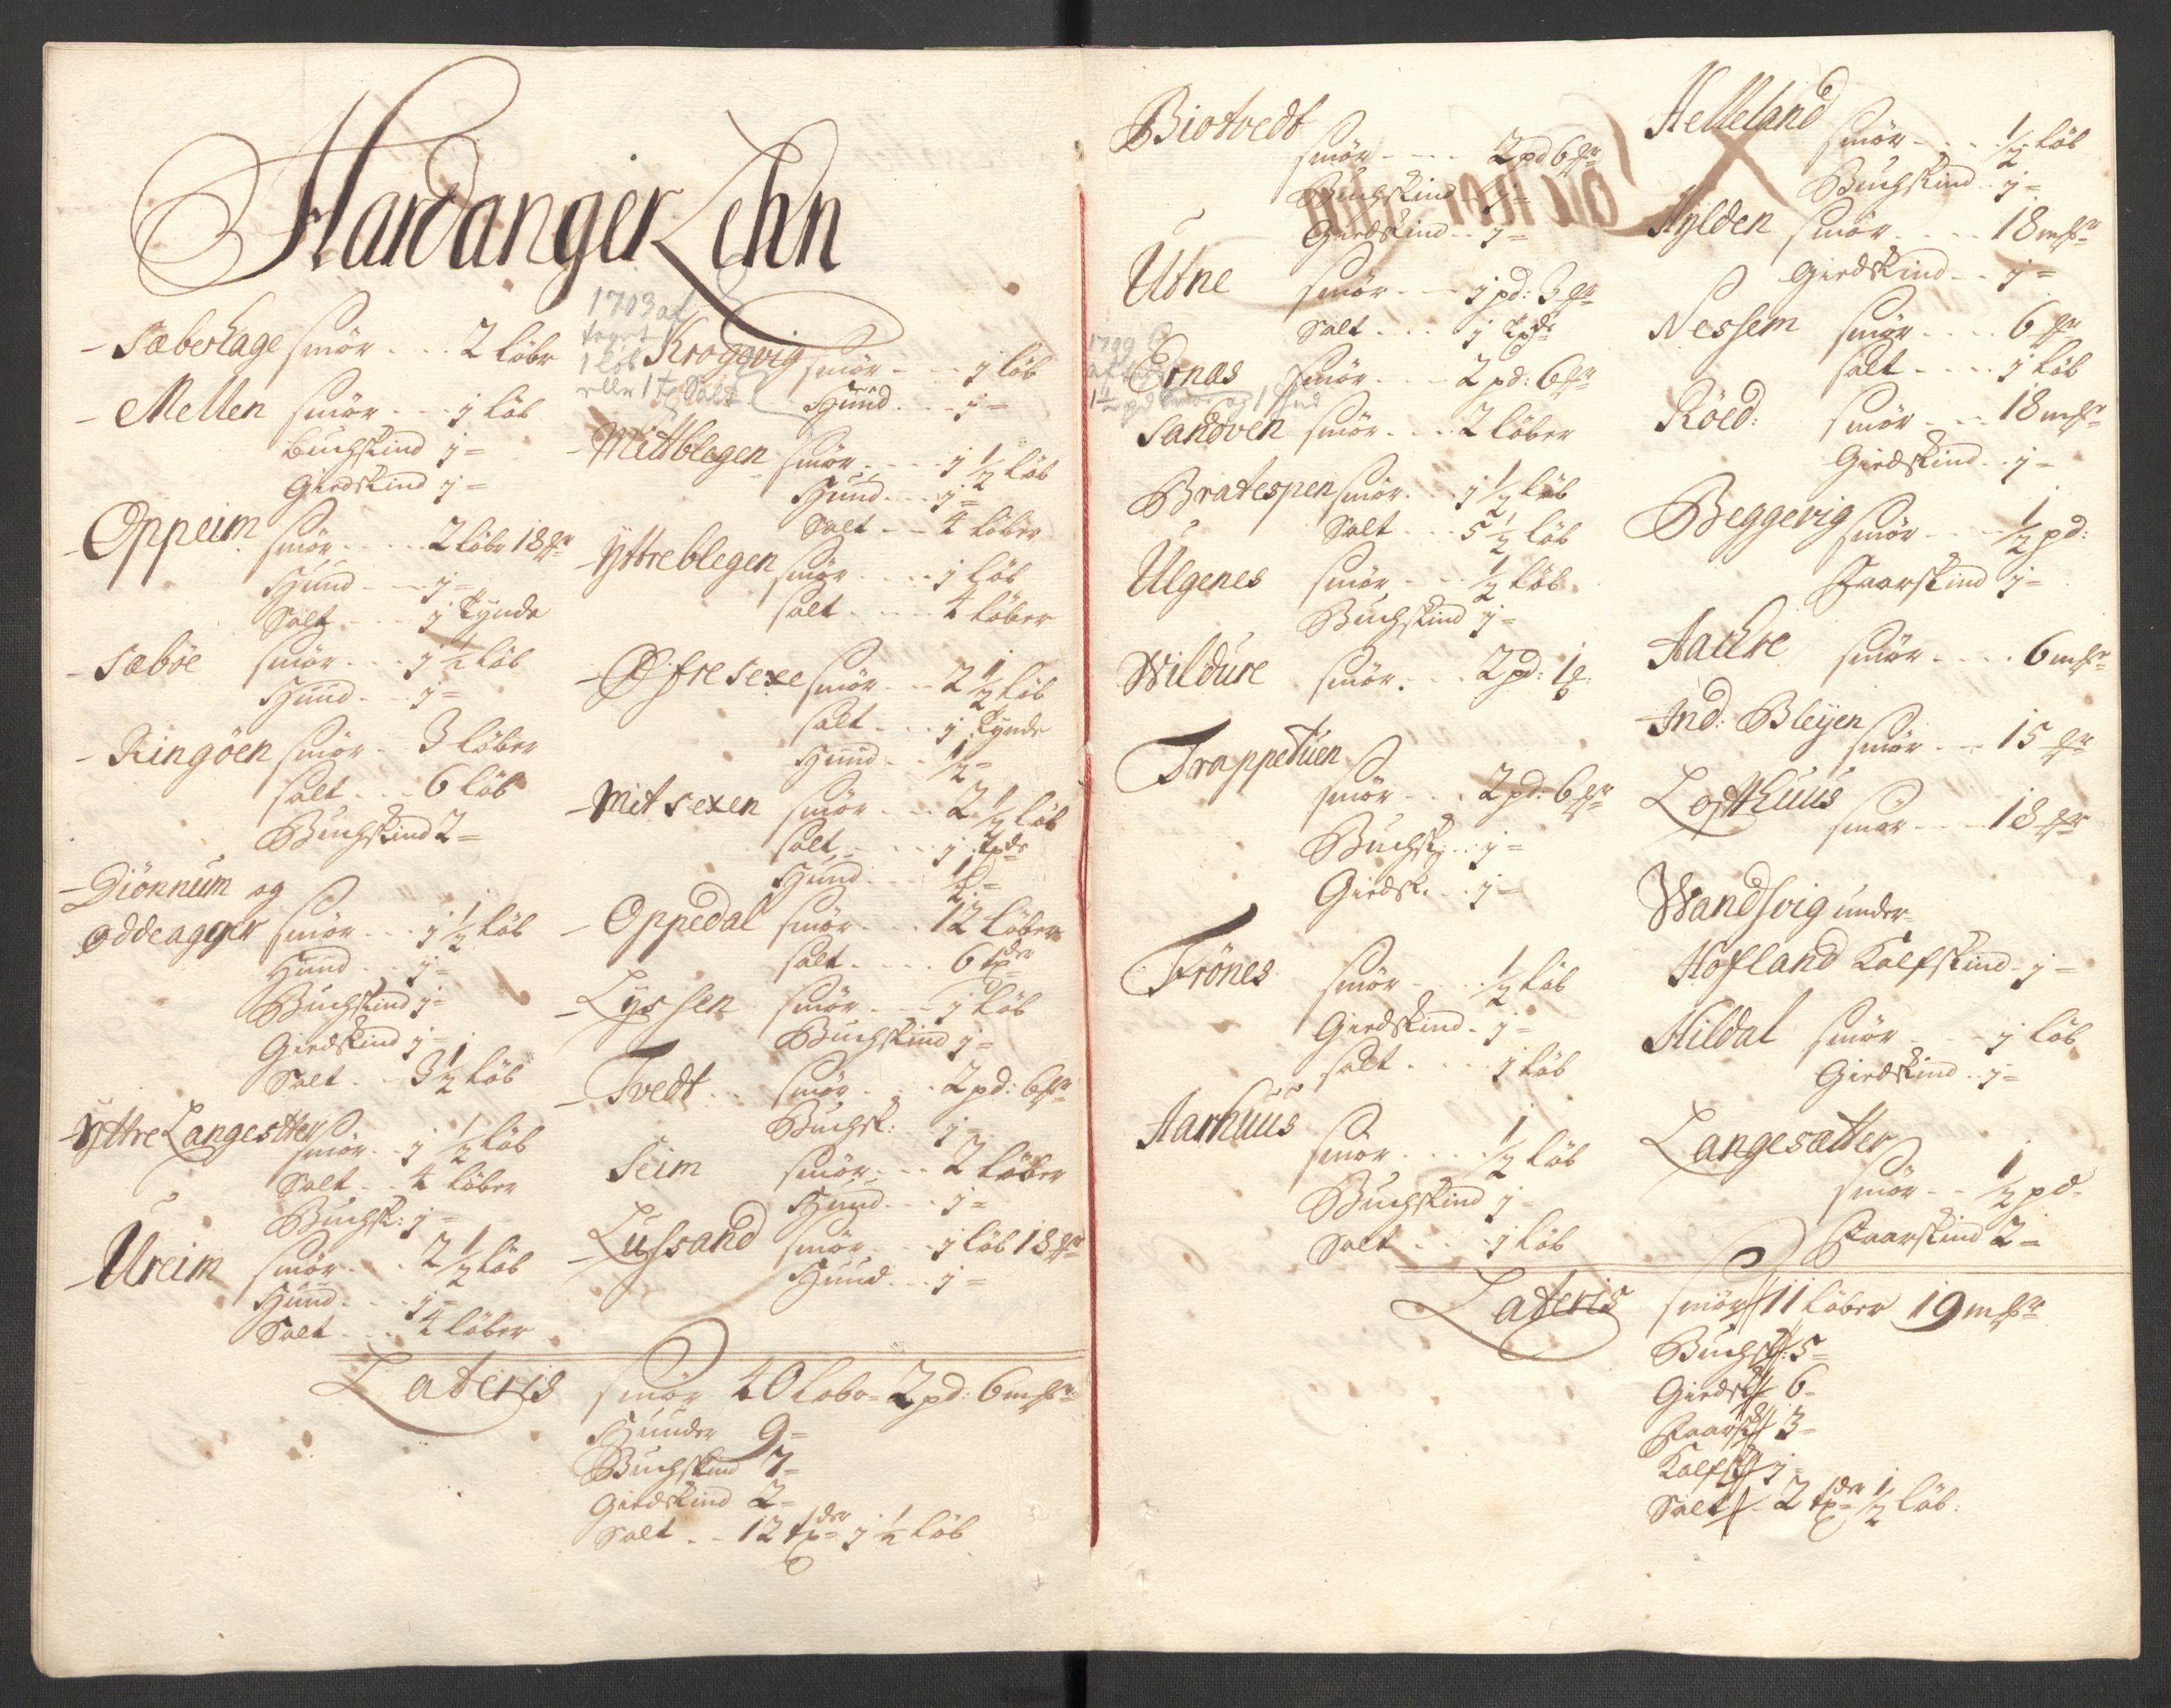 Hardanger Lehn
- Sæberhage smør . . . 2 løbr
- Mellen smør . . . j løb
Buchskind j =
Giedskind j =
- Oppeim
smør . . . . 2 løbr 18 mr
Hund . . . j =
Salt . . . j Tynde
- Sæbøe smør . . . j ½ løb
Hund . . . j =
- Ringöen smør . 3 løber
salt . . . 6 løb
Buchskind 2 =
- Diönnum og
oddeagger smør . . . j ½ løb
Hund . . j =
Buchskind j =
Giedskind j =
Salt . . 3 ½ løb
- Yttre Langesetter
smør . . j ½ løb
Salt . . 4 løber
Buchsk: j =
- Ureim smør . . . 2 ½ løb
Hund . . . j =
Salt . . . 4 løber
1703 af
1 løb
eller 1 Salt
Krogevig smør . . . j løb
Hund . . . j =
- Mittblegen smør . . . j ½ løb
Hund . . . j =
Salt . . 4 løber
- Yttreblegen smør . . . . j løb
salt . . . . 4 løber
- Øfre sexe smør . . . 2 ½ løb
salt . . . j Tynde
Hund . . . ½ =
- Mit sexen smør . . . 2 ½ løb
salt . . . j Tpde
Hund . . . ½ =
- Oppedal smør . . . 12 løber
salt . . . . 6 tpder
- Lyssen smør . . . j løb
Buchskind j =
- Tvedt . . smør . . . 2 pd: 6 mr
Buchsk: j =
Seim smør . . . 2 løber
Hund . . . j =
- Lussand smør . . . j løb 18 mr
Hund . . . j =
Lateris smør 40 løbr = 2 pd: 6 mr
Hunder 9 =
Buchskind 7 =
Giedskind 2 =
Salt . . 12 tpder j ½ løb
Biotvedt
smør . . . . 2 pd 6 mr
Buchskind j =
Giedskind . . j =
Utne smør . . . j pd: 3 mr
Salt . . . j Tpde
Ernæs smør . . . 2 pd: 6 mr
Sandven smør . . . 2 løber
Bratespen smør . . . j ½ løb
Salt . . . 5 ½ løb
Ulgenes smør . . . ½ løb
Buchskind j =
Wildure smør . . . 2 pd: 1
Trappetuen
smør . . . 2 pd: 6 mr
Buchsk: . . j =
Giedsk: . . j =
Trönes smør . . . ½ løb
Giedskind . j =
salt . . . . j løb
Aarhuus
smør . . . . ½ løb
Buchskind j =
Salt . . . j løb
Helleland
smør . . . . ½ løb
Buchskind . . j =
Hylden smør . . . . 18 mr
Giedskind . . j =
Nessem smør . . . . 6 mr
salt . . . . j løb
Röed: smør . . . 18 mr
Giedskind . . j =
Beggevig smør . . . ½ pd:
Faarskind j =
Aackre smør . . . . 6 mr
Ind: Bleijen
smør . . . 15 mr
Lofthuus
smør . . . 18 mr
Wandsvig under
Hofland Kalfskind . j =
Hildal smør . . . j løb
Giedskind . . j =
Langesætter
smør . . ½ pd.
Faarskind 2 =
Lateris smør 11 løber 19 mr
Buchsk: 5 =
Giedsk 6 =
Faarsk 3 =
Kalfsk j =
Salt 2 tpder ½ løb.